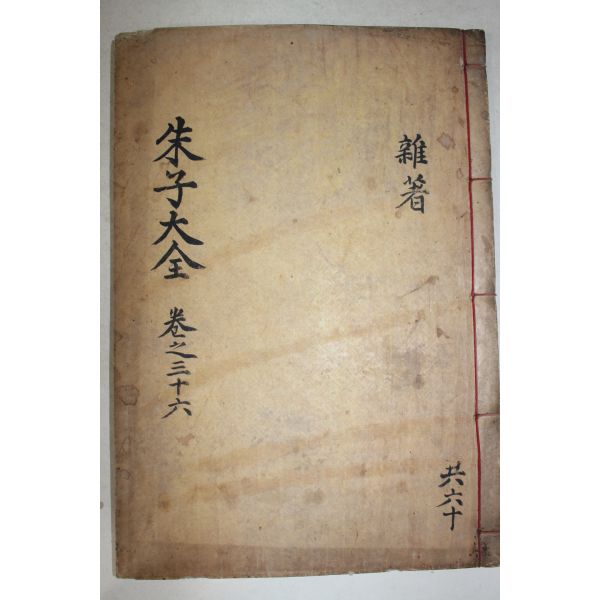 朱子大全 卷之三十六
雜著
共六十